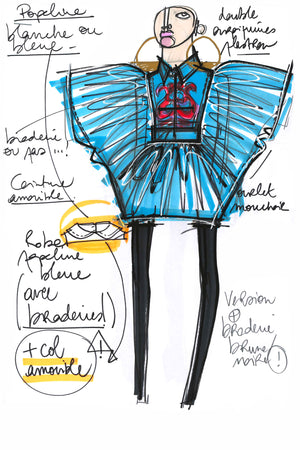 Popeline
blanche ou
bleue -
double
plastron
broderie
ou pas ...!
Ceinture
amovible
ourlet
mouchoir
Robe
popeline
bleue
(avec
broderies)
+ col
amovible
!
Version
+
broderie
brune/
noire
!